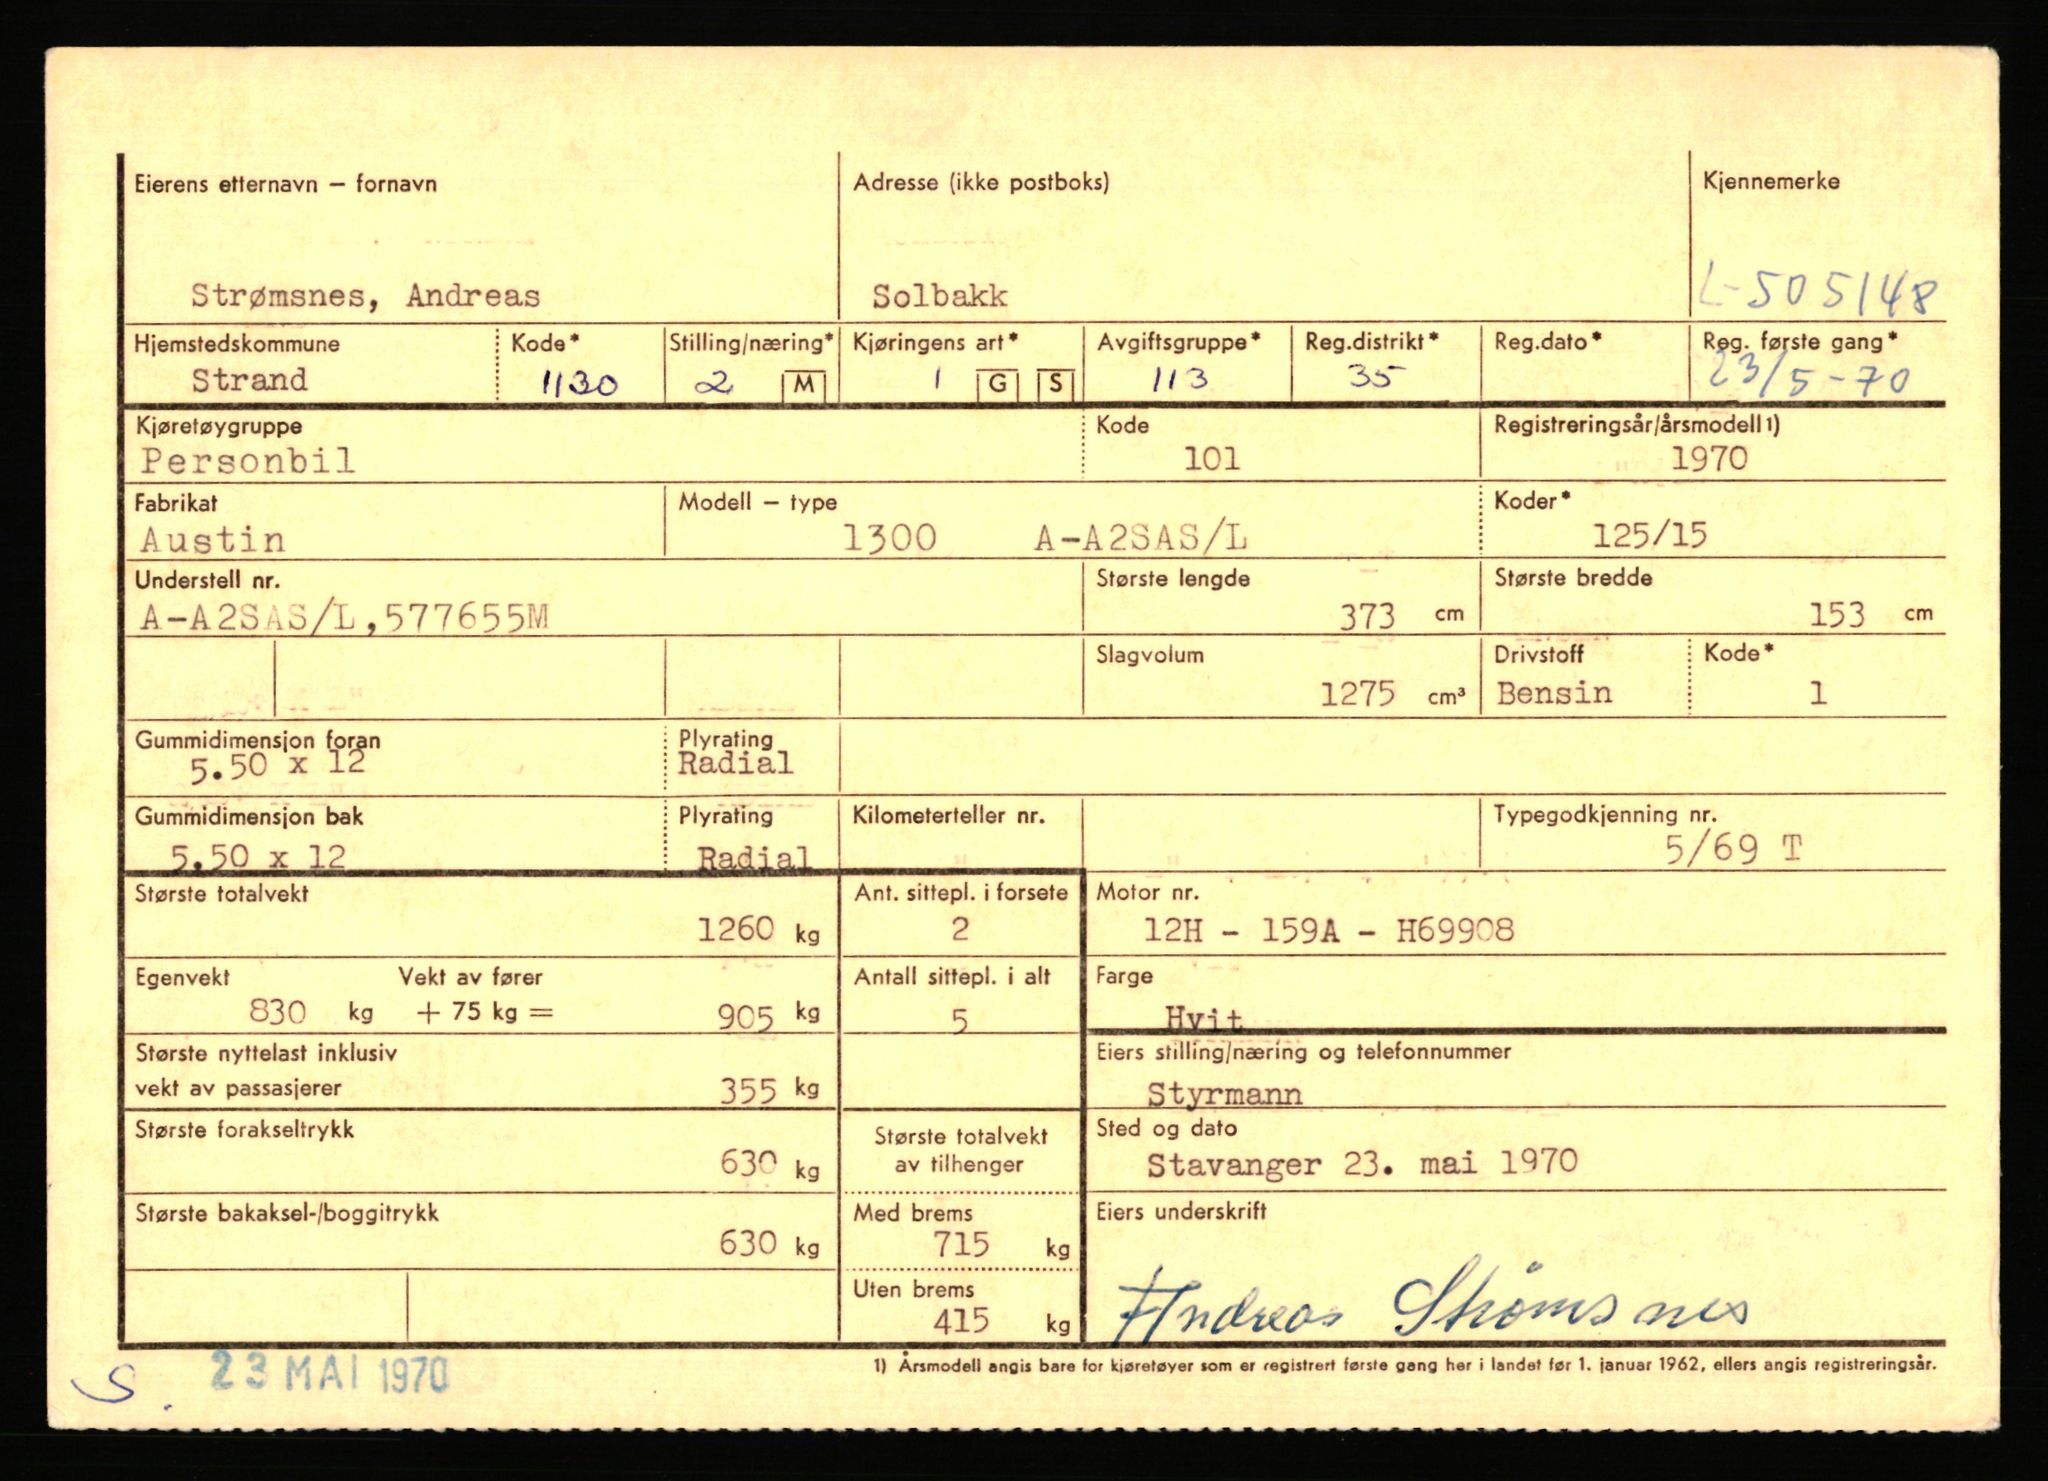 Eierens etternavn – fornavn Adresse (ikke postboks) Kjennemerke
Strømsnes, Andreas Solbakk L-505148
Hjemstedskommune Kode* Stilling/næring* Kjøringens art* Avgiftsgruppe* Reg.distrikt* Reg.dato* Reg. første gang*
Strand 1130 2 M 1 G S 113 35 23/5-70
Kjøretøygruppe Kode Registreringsår/årsmodell 1)
Personbil 101 1970
Fabrikat Modell – type Koder*
Austin 1300 A-A2SAS/L 125/15
Understell nr. Største lengde Største bredde
A-A2SAS/L,577655M 373 cm 153 cm
Slagvolum Drivstoff Kode*
1275 cm³ Bensin 1
Gummidimensjon foran Plyrating
5.50 x 12 Radial
Gummidimensjon bak Plyrating Kilometerteller nr. Typegodkjenning nr.
5.50 x 12 Radial 5/69 T
Største totalvekt Ant. sittepl. i forsete Motor nr.
1260 kg 2 12H - 159A - H69908
Egenvekt Vekt av fører Antall sittepl. i alt Farge
830 kg + 75 kg = 905 kg 5 Hvit
Største nyttelast inklusiv Eiers stilling/næring og telefonnummer
vekt av passasjerer 355 kg Styrmann
Største forakseltrykk Største totalvekt Sted og dato
630 kg av tilhenger Stavanger 23. mai 1970
Største bakaksel-/boggitrykk Med brems Eiers underskrift
630 kg 715 kg
Uten brems
415 kg Andreas Strømsnes
S. 23 MAI 1970 1) Årsmodell angis bare for kjøretøyer som er registrert første gang her i landet før 1. januar 1962, ellers angis registreringsår.